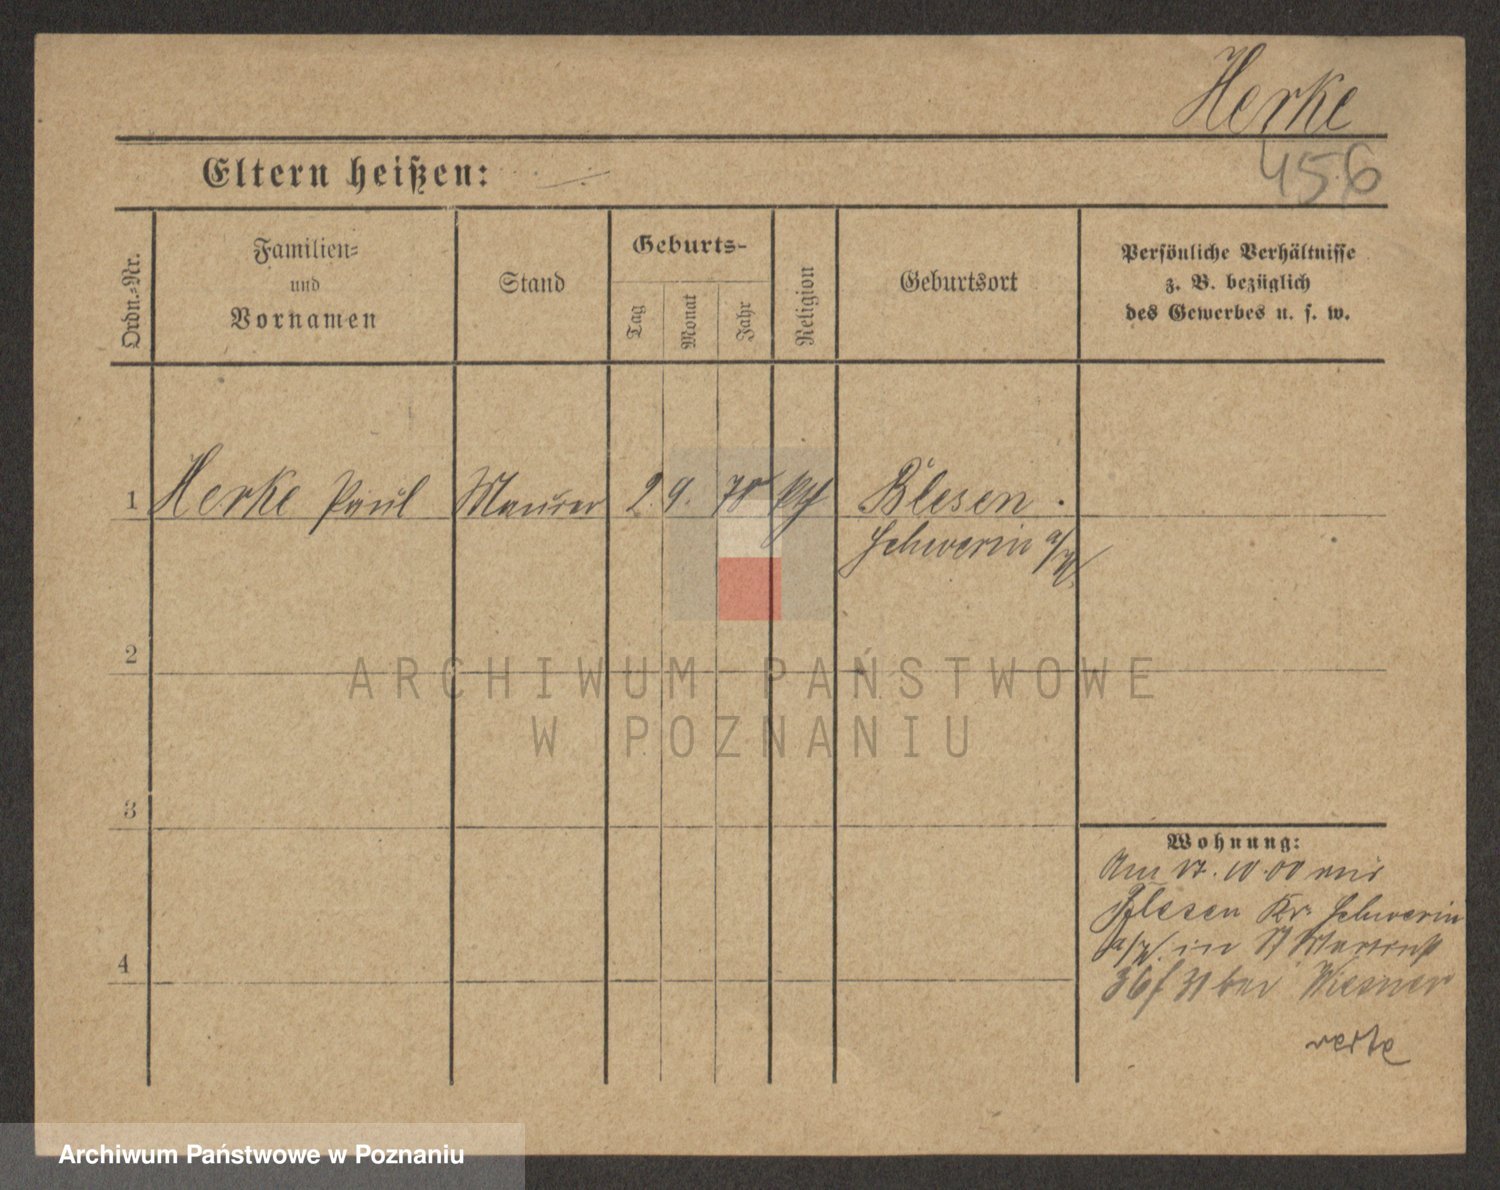 Herke
456
Eltern heißen:
Ordn.-Nr.
Familien-
und
Vornamen
Stand
Geburts-
Tag
Monat
Jahr
Religion
Geburtsort
Persönliche Verhältnisse
z. B. bezüglich
des Gewerbes u. s. w.
1 Herke Paul Maurer 2. 9. 70 Blesen.
Schwerin a/W.
2
ARCHIWUM PAŃSTWOWE
W POZNANIU
3
Wohnung:
Am 17. 10. 00 aus
Blesen Kr. Schwerin
a/W. in
4
bei Wiesner
verte
Archiwum Państwowe w Poznaniu